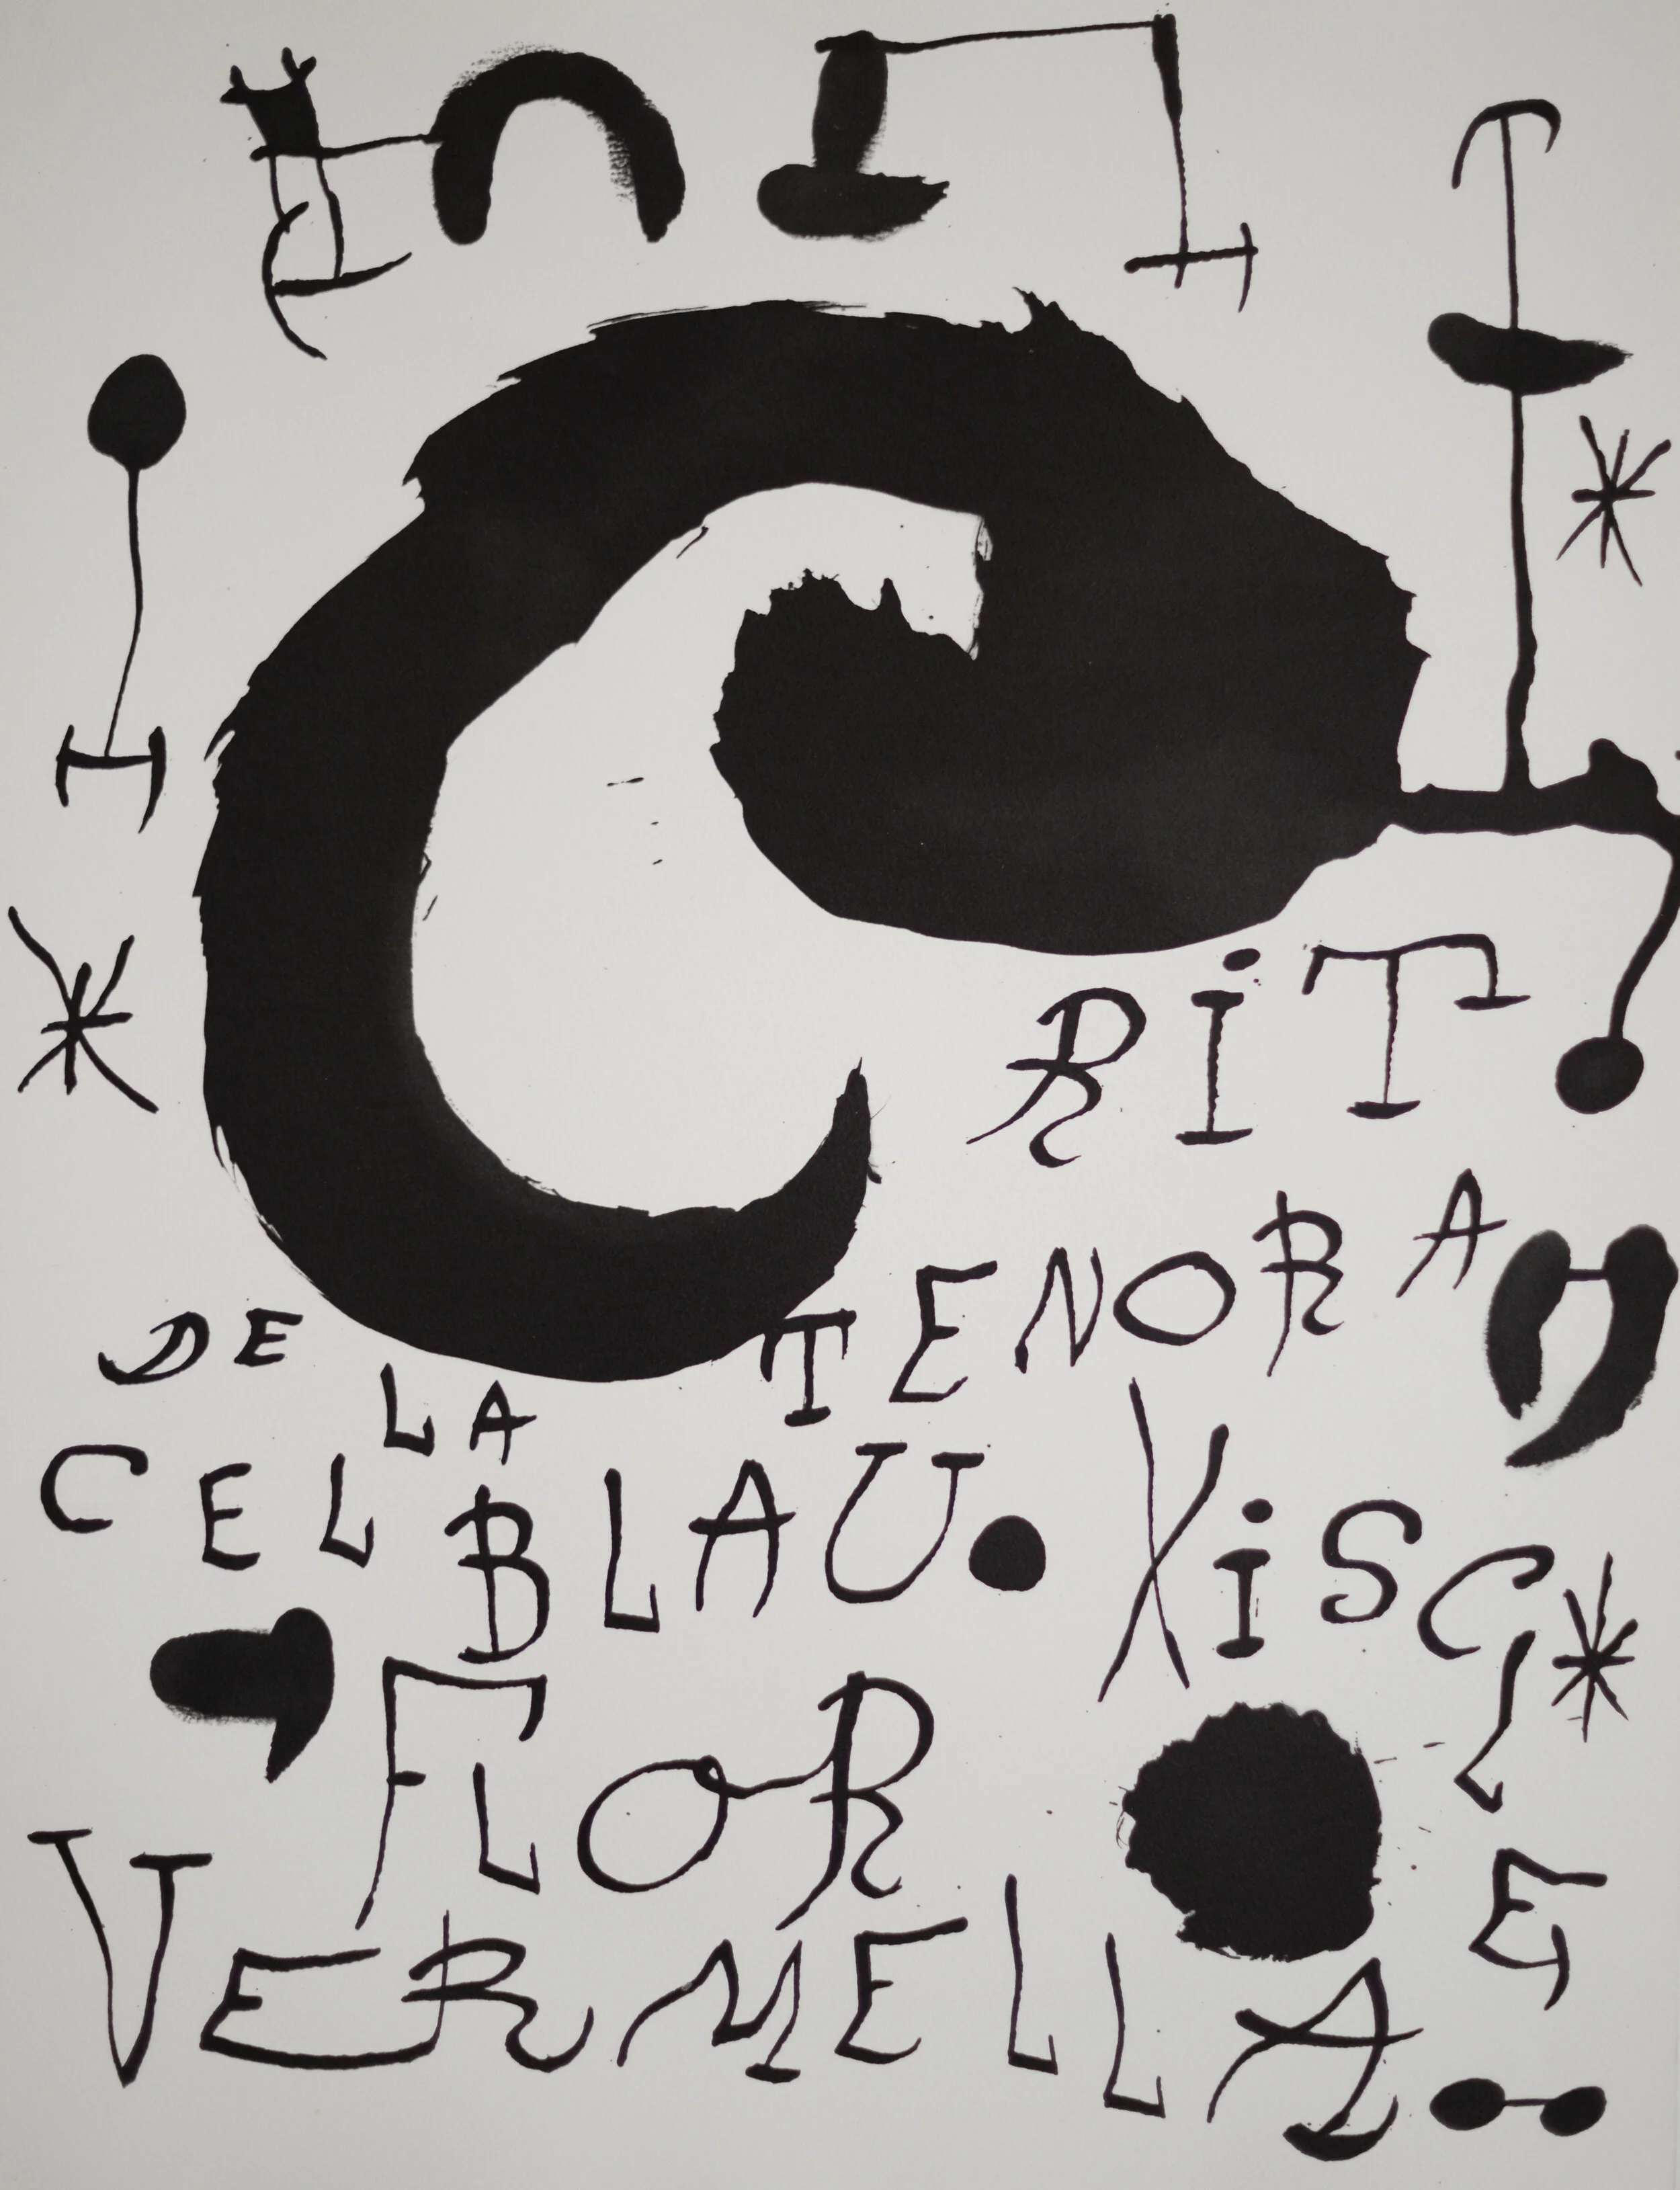 CRiT
DE LA TENORA
CEL BLAU. XiSCLE
FLOR
VERMELLA